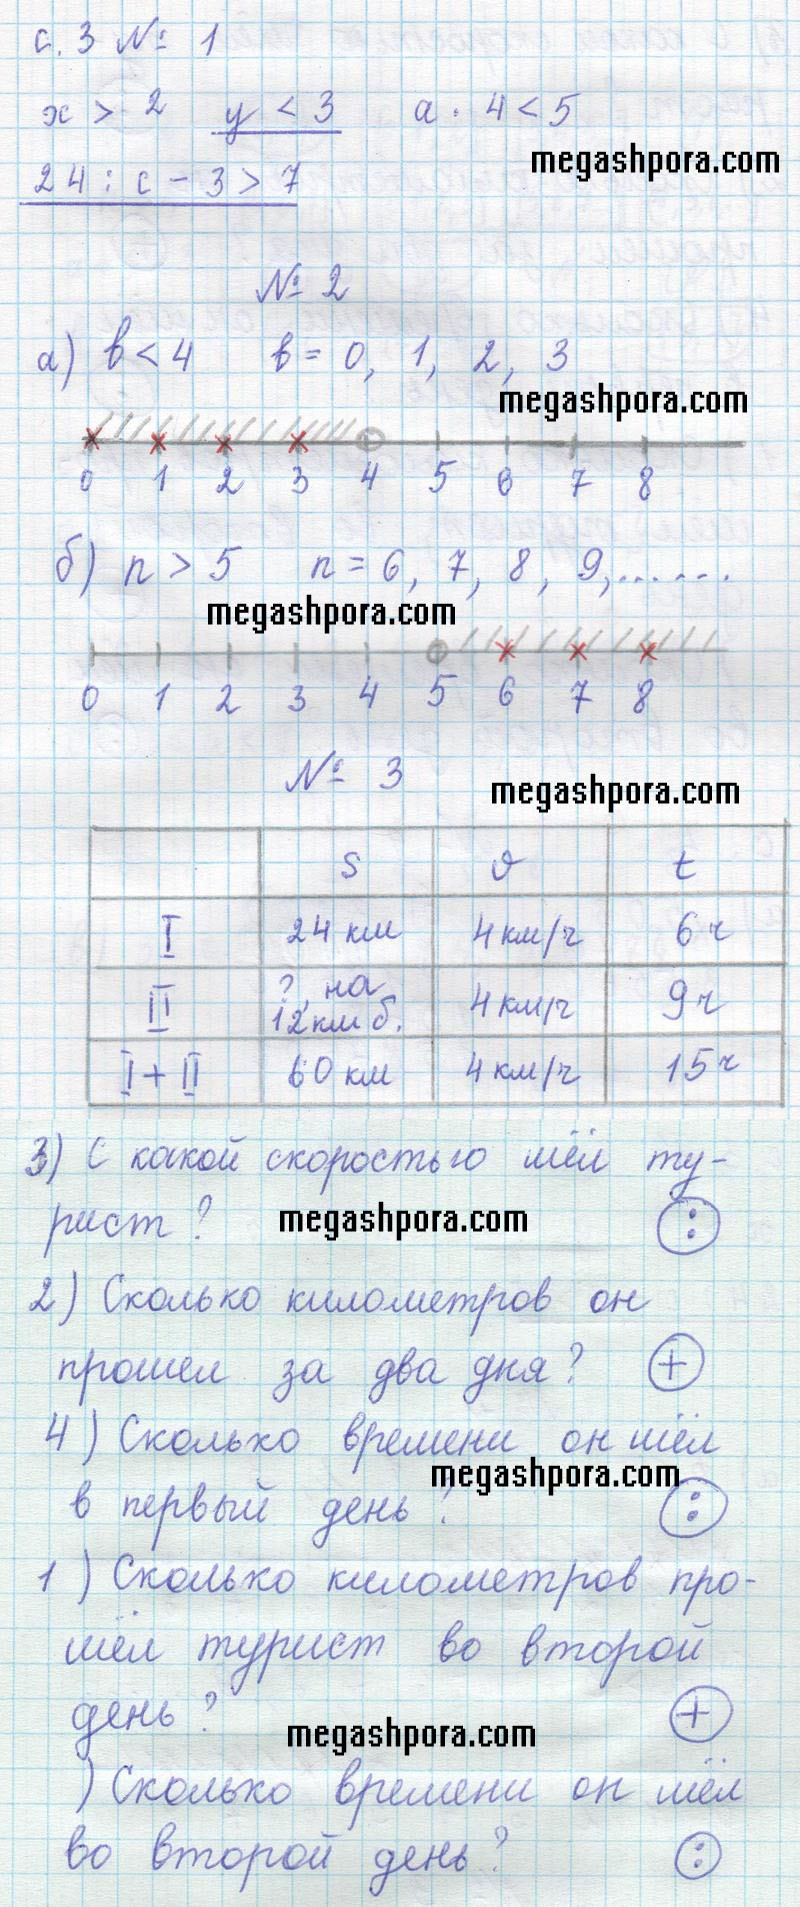 с. 3 № 1
x > 2 y < 3 a · 4 < 5
megashpora.com
24 : c - 3 > 7
№ 2
а) b < 4 b = 0, 1, 2, 3
megashpora.com
0 1 2 3 4 5 6 7 8
б) n > 5 n = 6, 7, 8, 9, ......
megashpora.com
0 1 2 3 4 5 6 7 8
№ 3
megashpora.com
S v t
I 24 км 4 км/ч 6 ч
II ?, на 12 км б. 4 км/ч 9 ч
I + II 60 км 4 км/ч 15 ч
3) С какой скоростью шёл ту-
рист? :
megashpora.com
2) Сколько километров он
прошел за два дня? +
4) Сколько времени он шёл
megashpora.com
в первый день? :
1) Сколько километров про-
шёл турист во второй
день? +
megashpora.com
) Сколько времени он шёл
во второй день? :